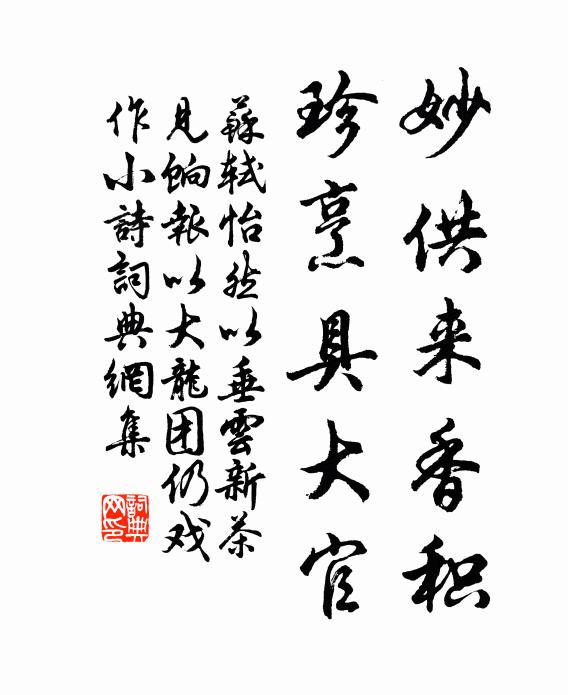 妙供来香积
珍烹具大官
蘇軾怡然以垂雲新茶
見餉報以大龍团仍戏
作小詩詞典網集
詞典网印